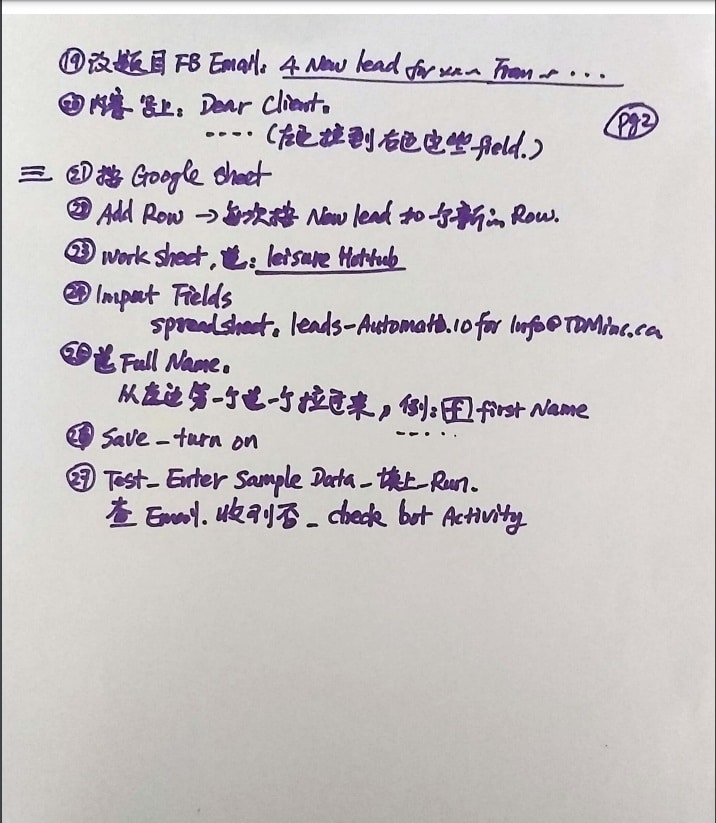 ⑲ 改题目 FB Email: 4 New lead for xx~ From ~ ...
⑳ 内容写上: Dear Client.
Pg2
.... (左边拉到右边这些 field.)
三 ㉑ 按 Google sheet
㉒ Add Row → 每次按 New lead 加一个新的 Row.
㉓ Work sheet, 选: leisure Hottub
㉔ Imput Fields
spreadsheet. leads-Automate.io for Info@TDMinc.ca
㉕ 选 Full Name.
从左边第一个选一个拉过来, 例: first Name
.....
㉖ Save - turn on
㉗ Test - Enter Sample Data - 填上 Run.
查 Email. 收到否 - check bot Activity